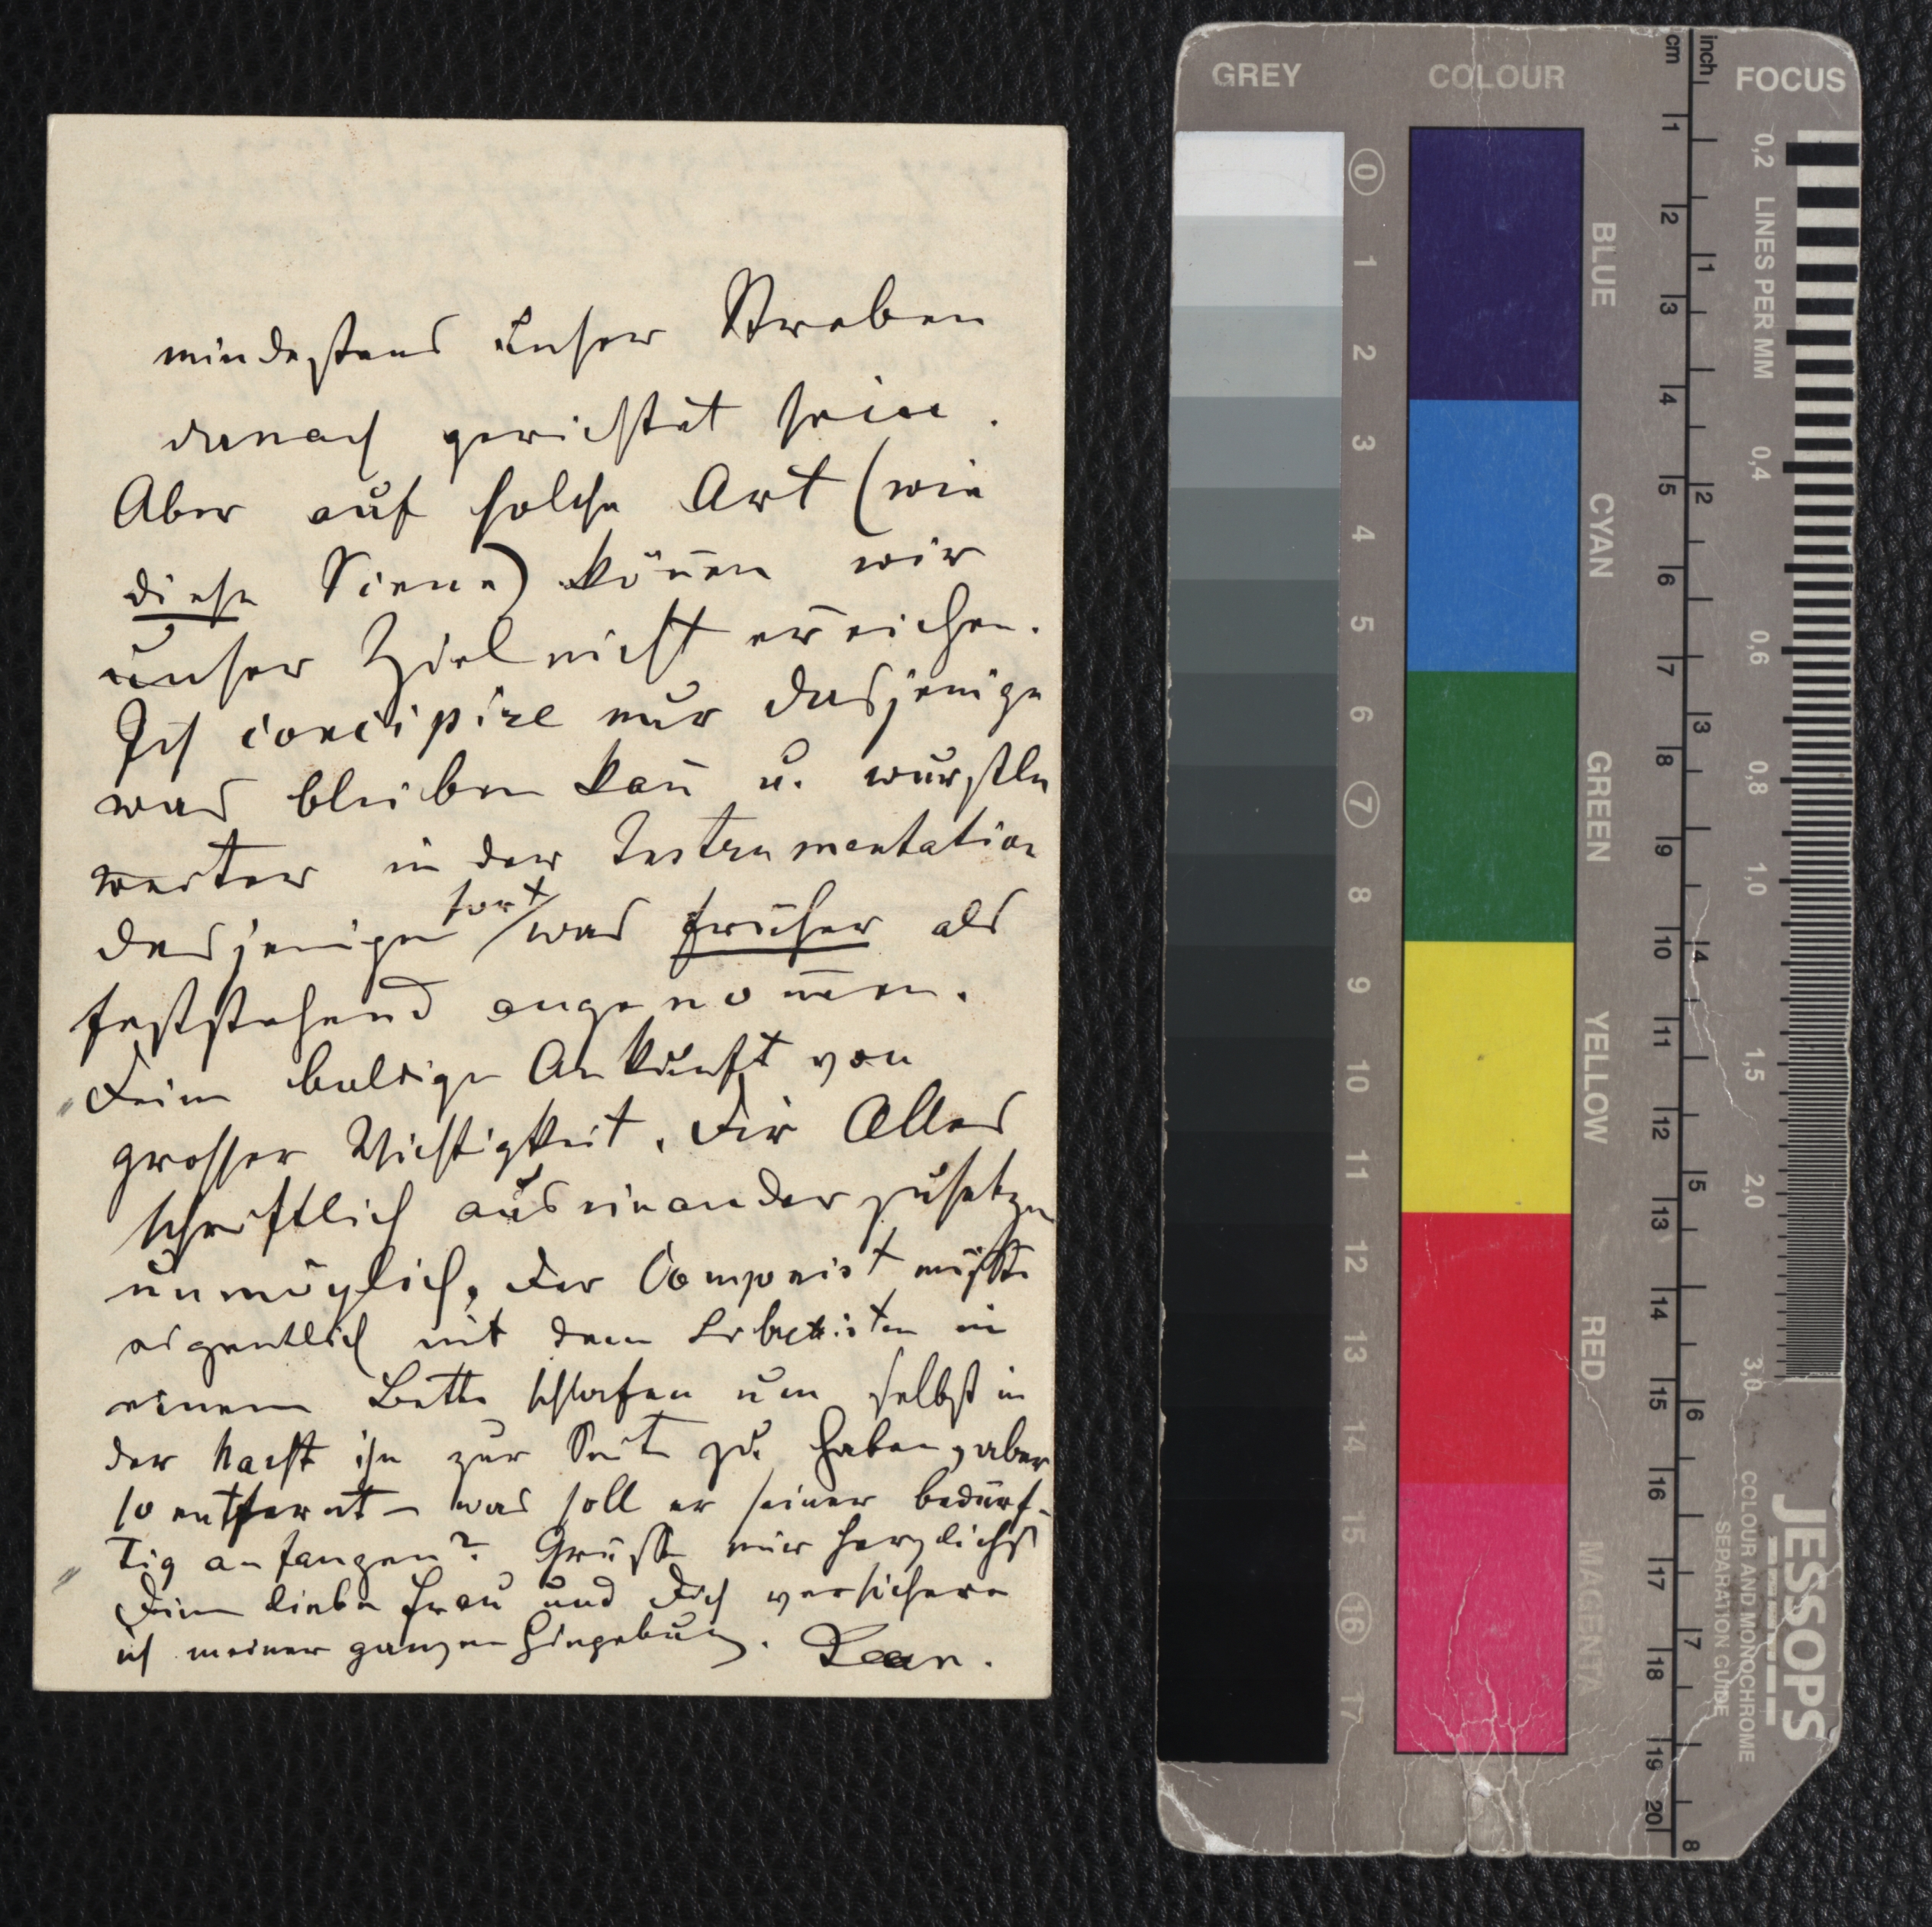 mindestens unser Streben
danach gerichtet sein.
Aber auf solche Art (wie
diese Scene) köñen wir
unser Ziel nicht erreichen.
Ich concipire nur dasjenige
was bleiben kañ u. wurstle
weiter in der Instrumentation
desjenigen fort was früher als
feststehend angenom̄en.
Deine baldige Ankunft von
grosser Wichtigkeit. Dir Alles
schriftlich auseinanderzusetzen
unmöglich, der Componist müsste
eigentlich mit dem Librettisten in
einem Bette schlafen um selbst in
der Nacht ihn zur Seite zu haben, aber
so entfernt – was soll er seiner bedürf-
tig anfangen? Grüsse mir herzlichst
Deine liebe Frau und Dich versichere
ich meiner ganzen Hingebung.
GREY
COLOUR
FOCUS
cm
inch
0 1 2 3 4 5 6 7 8 9 10 11 12 13 14 15 16 17
BLUE
CYAN
GREEN
YELLOW
RED
MAGENTA
1 2 3 4 5 6 7 8 9 10 11 12 13 14 15 16 17 18 19 20
1 2 3 4 5 6 7 8
0,2 LINES PER MM
0,4
0,6
0,8
1,0
1,5
2,0
3,0
JESSOPS
COLOUR AND MONOCHROME
SEPARATION GUIDE